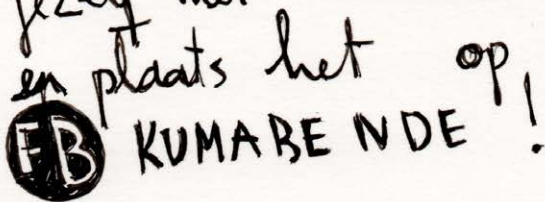 en plaats het op
FB KUMABENDE!